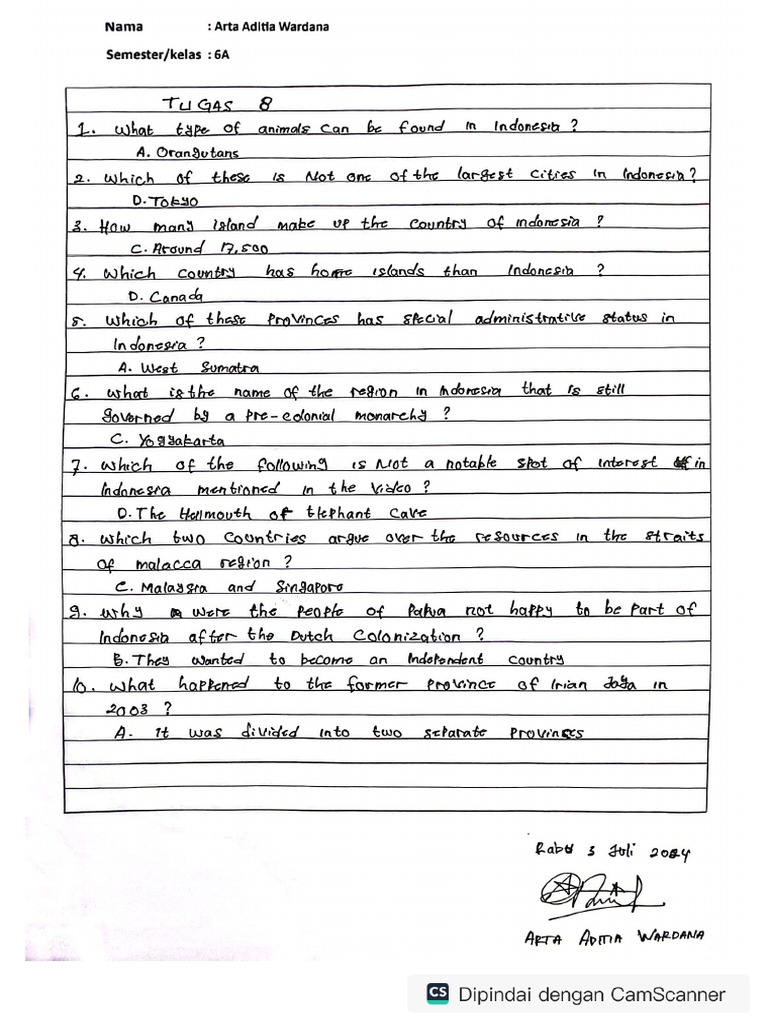 Nama : Arta Aditia Wardana
Semester/kelas : 6A
TUGAS 8
1. What type of animals can be found in Indonesia ?
A. Orangutans
2. Which of these is Not one of the largest cities in Indonesia ?
D. Tokyo
3. How many island make up the country of indonesia ?
C. Around 17,500
4. Which country has home islands than Indonesia ?
D. Canada
5. Which of these Provinces has special administrative status in
Indonesia ?
A. West Sumatra
6. What is the name of the region in Indonesia that is still
governed by a pre-colonial monarchy ?
C. Yogyakarta
7. Which of the following is Not a notable spot of interest in
Indonesia mentioned in the video ?
D. The Hellmouth of Elephant Cave
8. Which two Countries argue over the resources in the straits
of malacca region ?
C. Malaysia and Singapore
9. Why were the people of Papua not happy to be part of
Indonesia after the Dutch Colonization ?
B. They wanted to become an Independent country
10. What happened to the former province of Irian Jaya in
2003 ?
A. It was divided into two separate provinces
Rabu 3 Juli 2024
ARTA ADITIA WARDANA
CS Dipindai dengan CamScanner